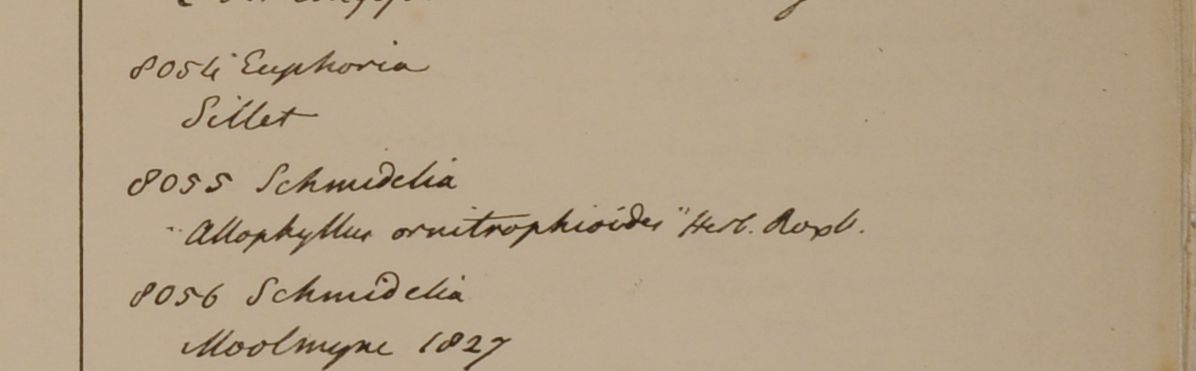 8054 Euphoria
Sillet
8055 Schmidelia
"Allophyllus ornitrophioides" Herb. Roxb.
8056 Schmidelia
Moolmyne 1827